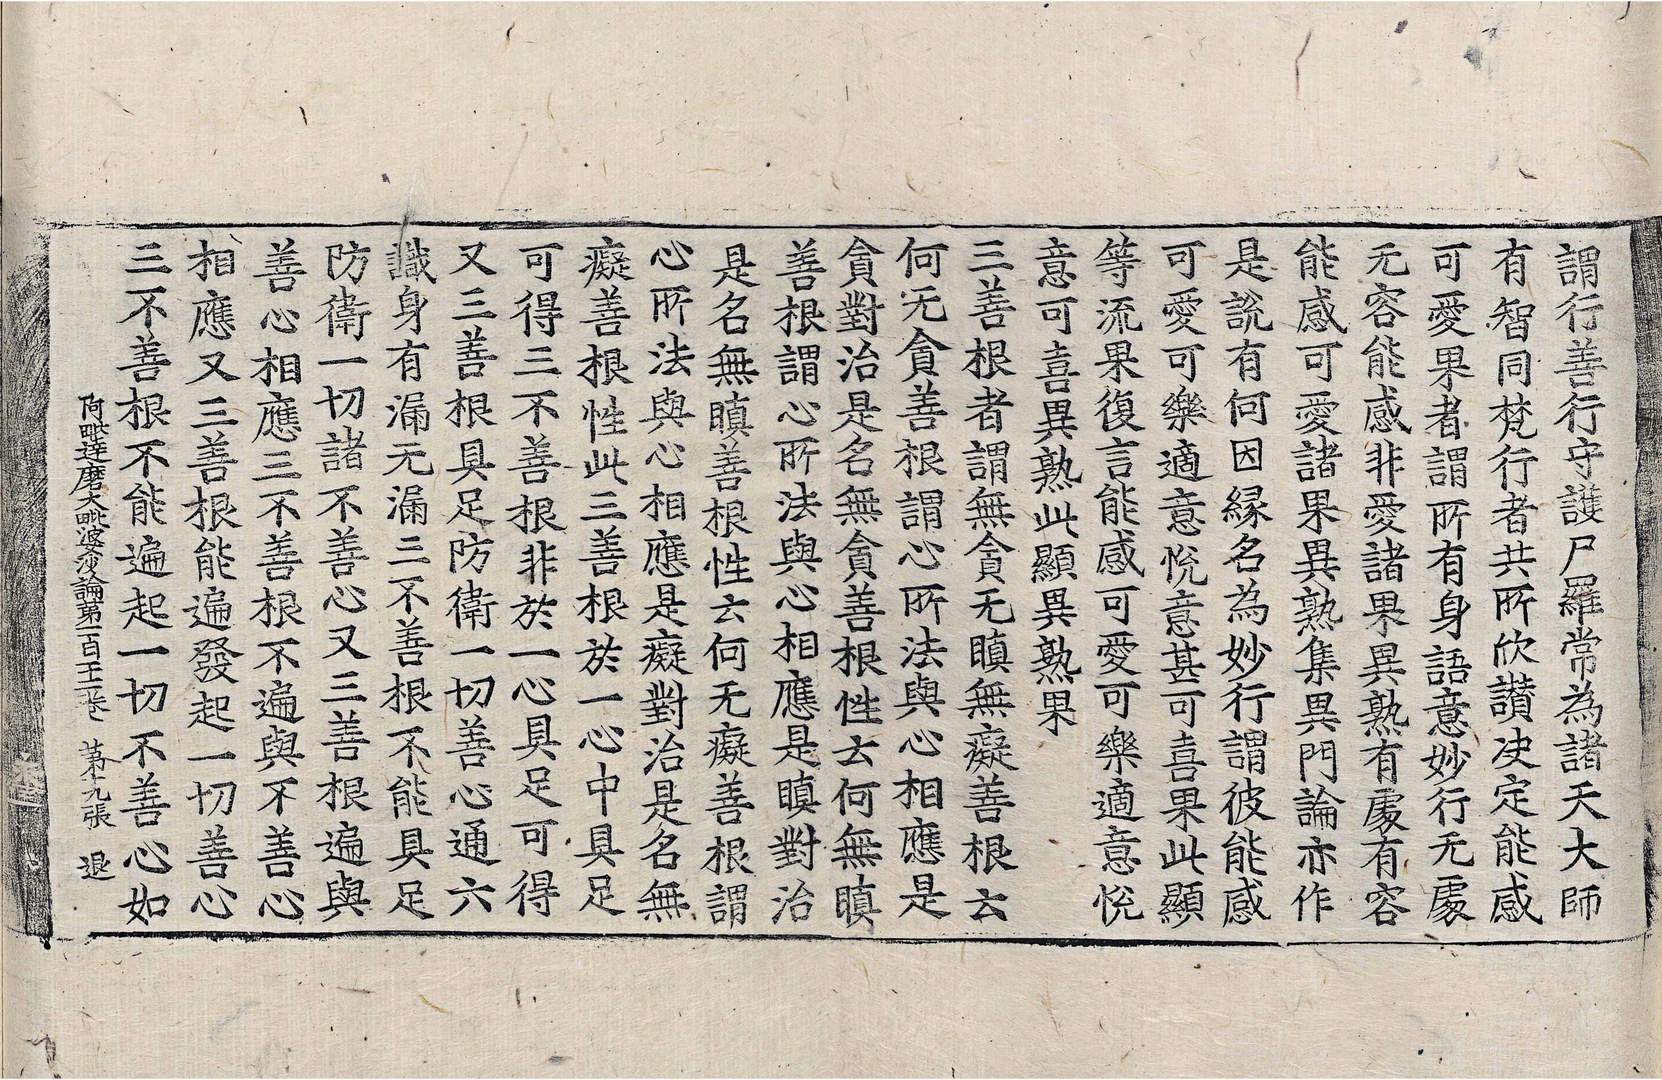 謂行善行守護尸羅常為諸天大師
有智同梵行者共所欣讚决定能感
可愛果者謂所有身語意妙行无處
无容能感非愛諸果異熟有處有容
能感可愛諸果異熟集異門論亦作
是說有何因縁名為妙行謂彼能感
可愛可樂適意悅意甚可喜果此顯
等流果復言能感可愛可樂適意悅
意可喜異熟此顯異熟果
三善根者謂無貪无瞋無癡善根云
何无貪善根謂心所法與心相應是
貪對治是名無貪善根性云何無瞋
善根謂心所法與心相應是瞋對治
是名無瞋善根性云何无癡善根謂
心所法與心相應是癡對治是名無
癡善根性此三善根於一心中具足
可得三不善根非於一心具足可得
又三善根具足防衛一切善心通六
識身有漏无漏三不善根不能具足
防衛一切諸不善心又三善根遍與
善心相應三不善根不遍與不善心
相應又三善根能遍發起一切善心
三不善根不能遍起一切不善心如
阿毗達磨大毗婆沙論第一百十二卷 第十九張 退